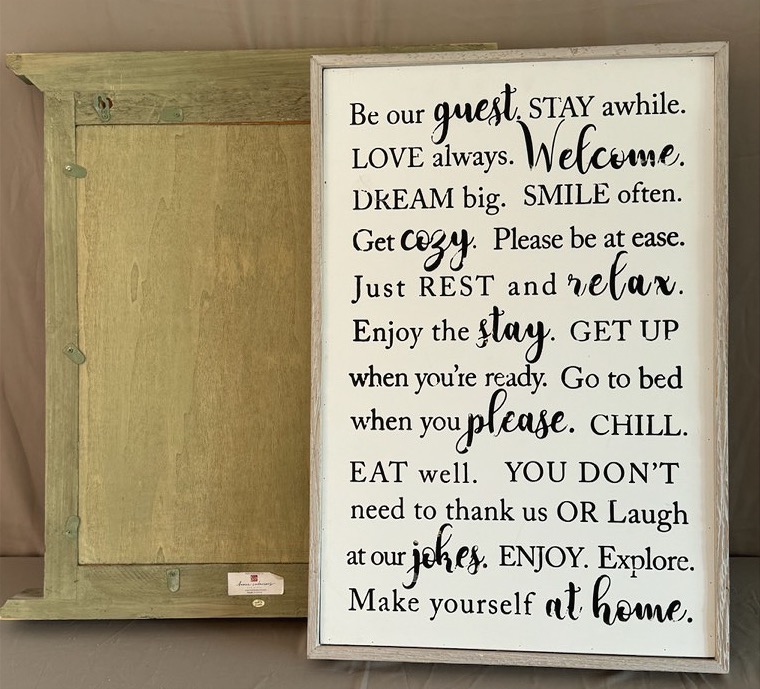 Be our guest. STAY awhile.
LOVE always. Welcome.
DREAM big. SMILE often.
Get cozy. Please be at ease.
Just REST and relax.
Enjoy the stay. GET UP
when you're ready. Go to bed
when you please. CHILL.
EAT well. YOU DON'T
need to thank us OR Laugh
at our jokes. ENJOY. Explore.
Make yourself at home.